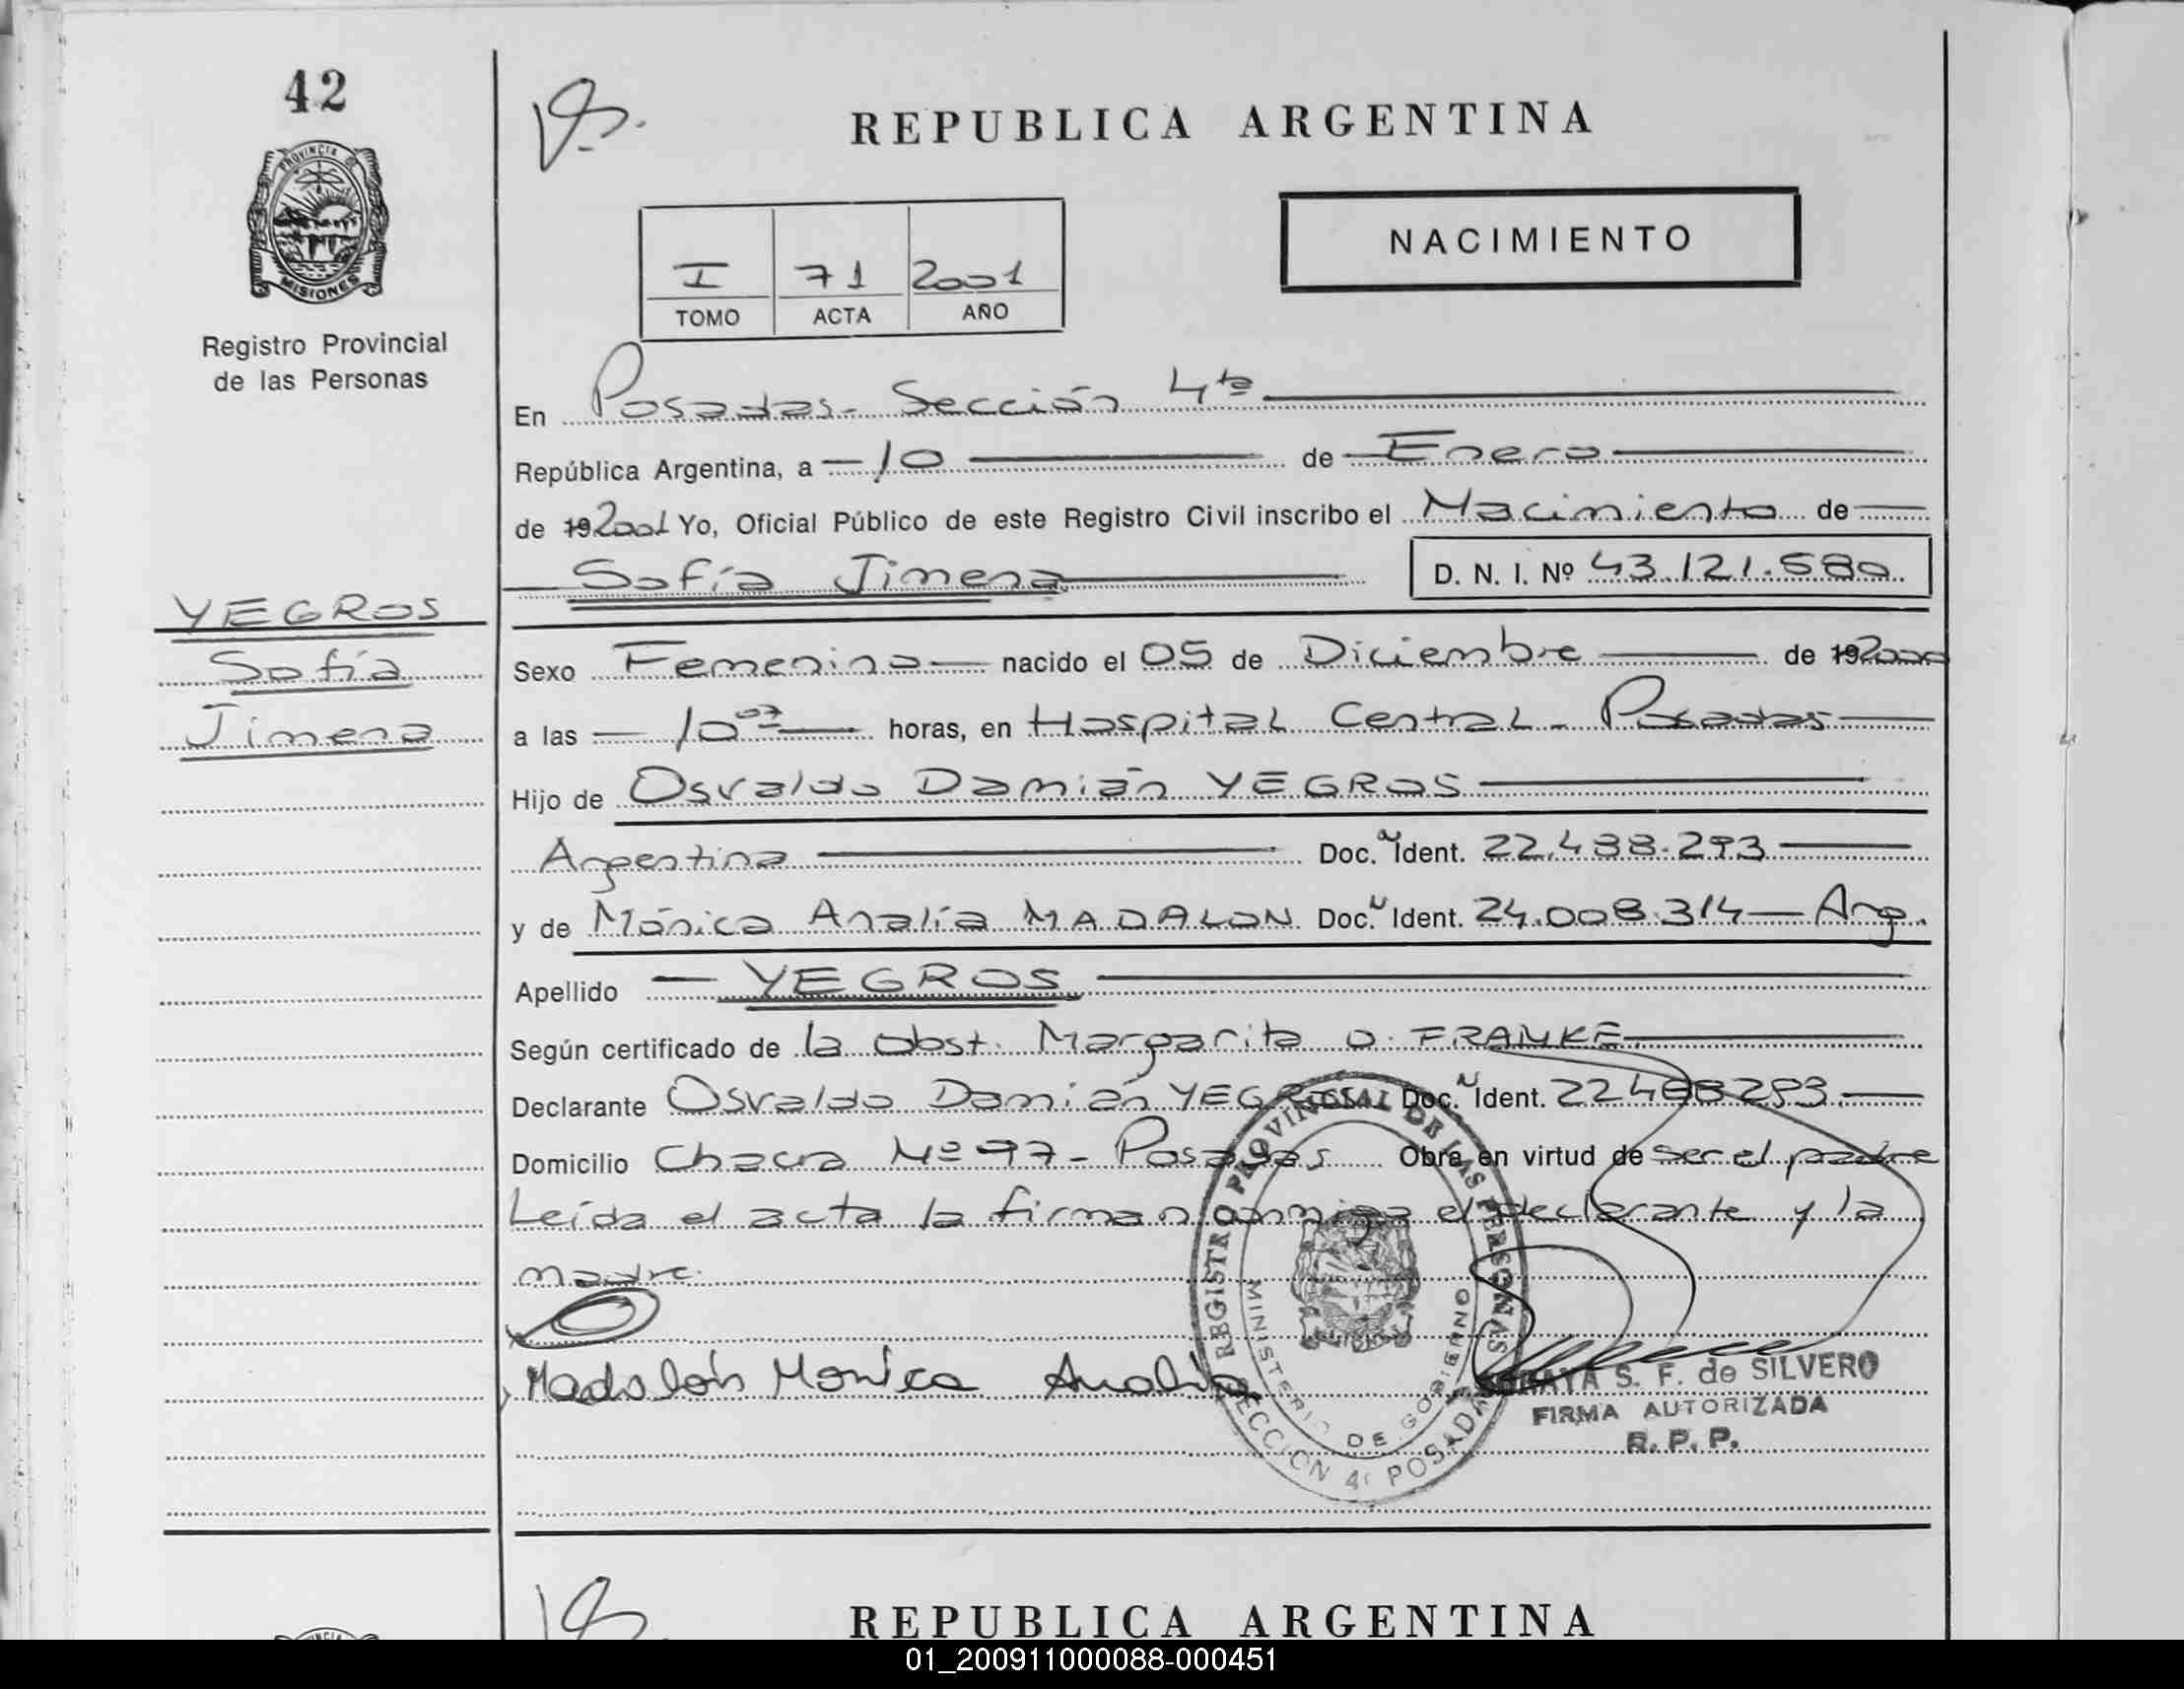 42
PROVINCIA DE
MISIONES
Registro Provincial
de las Personas
REPUBLICA ARGENTINA
NACIMIENTO
I 71 2001
TOMO ACTA AÑO
En Posadas - Sección 4ta
República Argentina, a - 10 de Enero
de 19 2001 Yo, Oficial Público de este Registro Civil inscribo el Nacimiento de
Sofía Jimena D. N. I. Nº 43.121.580
YEGROS
Sofía
Jimena
Sexo Femenino nacido el 05 de Diciembre de 19 2000
a las 10 07 horas, en Hospital Central - Posadas
Hijo de Osvaldo Damián YEGROS
Argentina Doc. N Ident. 22.488.293
y de Mónica Analía MADALON Doc. N Ident. 24.008.314 - Arg.
Apellido - YEGROS
Según certificado de la Obst. Margarita O. FRANKE
Declarante Osvaldo Damián YEGROS Doc. N Ident. 22488293
Domicilio Chacra Nº 97 - Posadas Obra en virtud de ser el padre
Leída el acta la firman conmigo el declarante y la
madre.
Madalón Monica Analia
REGISTRO PROVINCIAL DE LAS PERSONAS
MINISTERIO DE GOBIERNO
SECCION 4 POSADAS
S. F. de SILVERO
FIRMA AUTORIZADA
R. P. P.
REPUBLICA ARGENTINA
01_200911000088-000451